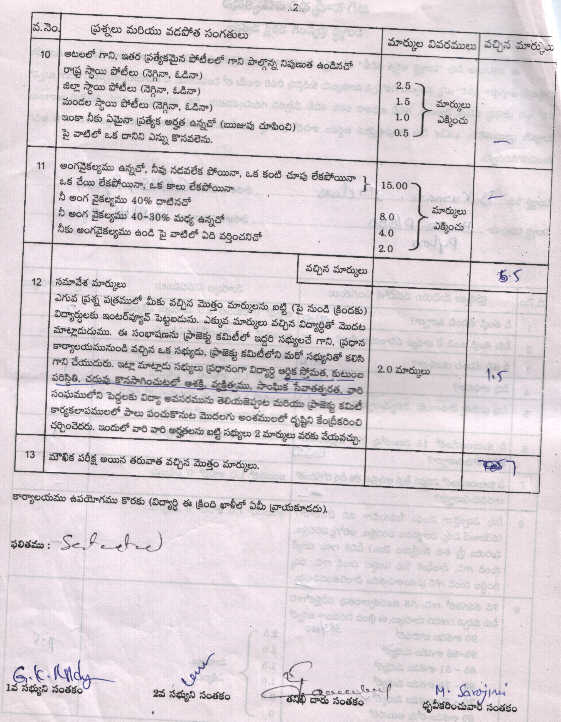 2
వ.నెం. ప్రశ్నలు మరియు వడపోత సంగతులు మార్కుల వివరములు వచ్చిన మార్కులు
10 ఆటలలో గాని, ఇతర ప్రత్యేకమైన పోటీలలో గాని పాల్గొన్న నిపుణుత ఉండినచో
రాష్ట్ర స్థాయి పోటీలు (నెగ్గినా, ఓడినా) 2.5
జిల్లా స్థాయి పోటీలు (నెగ్గినా, ఓడినా) 1.5 మార్కులు
మండల స్థాయి పోటీలు (నెగ్గినా, ఓడినా) 1.0 ఎక్కించు
ఇంకా నీకు ఏమైనా ప్రత్యేక అర్హత ఉన్నచో (ఋజువు చూపించి) 0.5 —
పై వాటిలో ఒక దానిని ఎన్ను కొనవలెను.
11 అంగవైకల్యము ఉన్నచో, నీవు నడవలేక పోయినా, ఒక కంటి చూపు లేకపోయినా
ఒక చేయి లేకపోయినా, ఒక కాలు లేకపోయినా 15.00 —
నీ అంగ వైకల్యము 40% దాటినచో మార్కులు
నీ అంగ వైకల్యము 40-30% మధ్య ఉన్నచో 8.0 ఎక్కించు
నీకు అంగవైకల్యము ఉండి పై వాటిలో ఏది వర్తించనిచో 4.0
2.0
వచ్చిన మార్కులు 5.5
12 సమావేశ మార్కులు
ఎగువ ప్రశ్న పత్రములో మీకు వచ్చిన మొత్తం మార్కులను బట్టి (పై నుండి క్రిందకు)
విద్యార్థులకు ఇంటర్వ్యూవ్ పెట్టబడును. ఎక్కువ మార్కులు వచ్చిన విద్యార్థితో మొదట
మాట్లాడుదుము. ఈ సంభాషణను ప్రాజెక్టు కమిటీలో ఇద్దరి సభ్యులచే గాని, ప్రధాన
కార్యాలయమునుండి వచ్చిన ఒక సభ్యుడు, ప్రాజెక్టు కమిటీలోని మరో సభ్యునితో కలిసి
గాని చేయుదురు. ఇట్లా మాట్లాడు సభ్యులు ప్రధానంగా విద్యార్థి ఆర్థిక సోమత, కుటుంబ 2.0 మార్కులు 1.5
పరిస్థితి, చదువు కొనసాగించుటలో ఆశక్తి, వ్యక్తిత్వము, సాంఘిక సేవాతత్పరత, వారి
సంఘములోని పెద్దలకు విద్యా అవసరమును తెలియజెప్పుట మరియు ప్రాజెక్టు కమిటీ
కార్యకలాపములలో పాలు పంచుకొనుట మొదలగు అంశములలో దృష్టిని కేంద్రీకరించి
చర్చించెదరు. ఇందులో వారి వారి అర్హతలను బట్టి సభ్యులు 2 మార్కులు వరకు వేయవచ్చు.
13 మౌఖిక పరీక్ష అయిన తరువాత వచ్చిన మొత్తం మార్కులు. 7
కార్యాలయము ఉపయోగము కొరకు (విద్యార్థి ఈ క్రింది ఖాళీలో ఏమీ వ్రాయకూడదు).
ఫలితము : Selected
G.K. Reddy M. Sarojini
1వ సభ్యుని సంతకం 2వ సభ్యుని సంతకం తనిఖీ దారు సంతకం ధృవీకరించువారి సంతకం